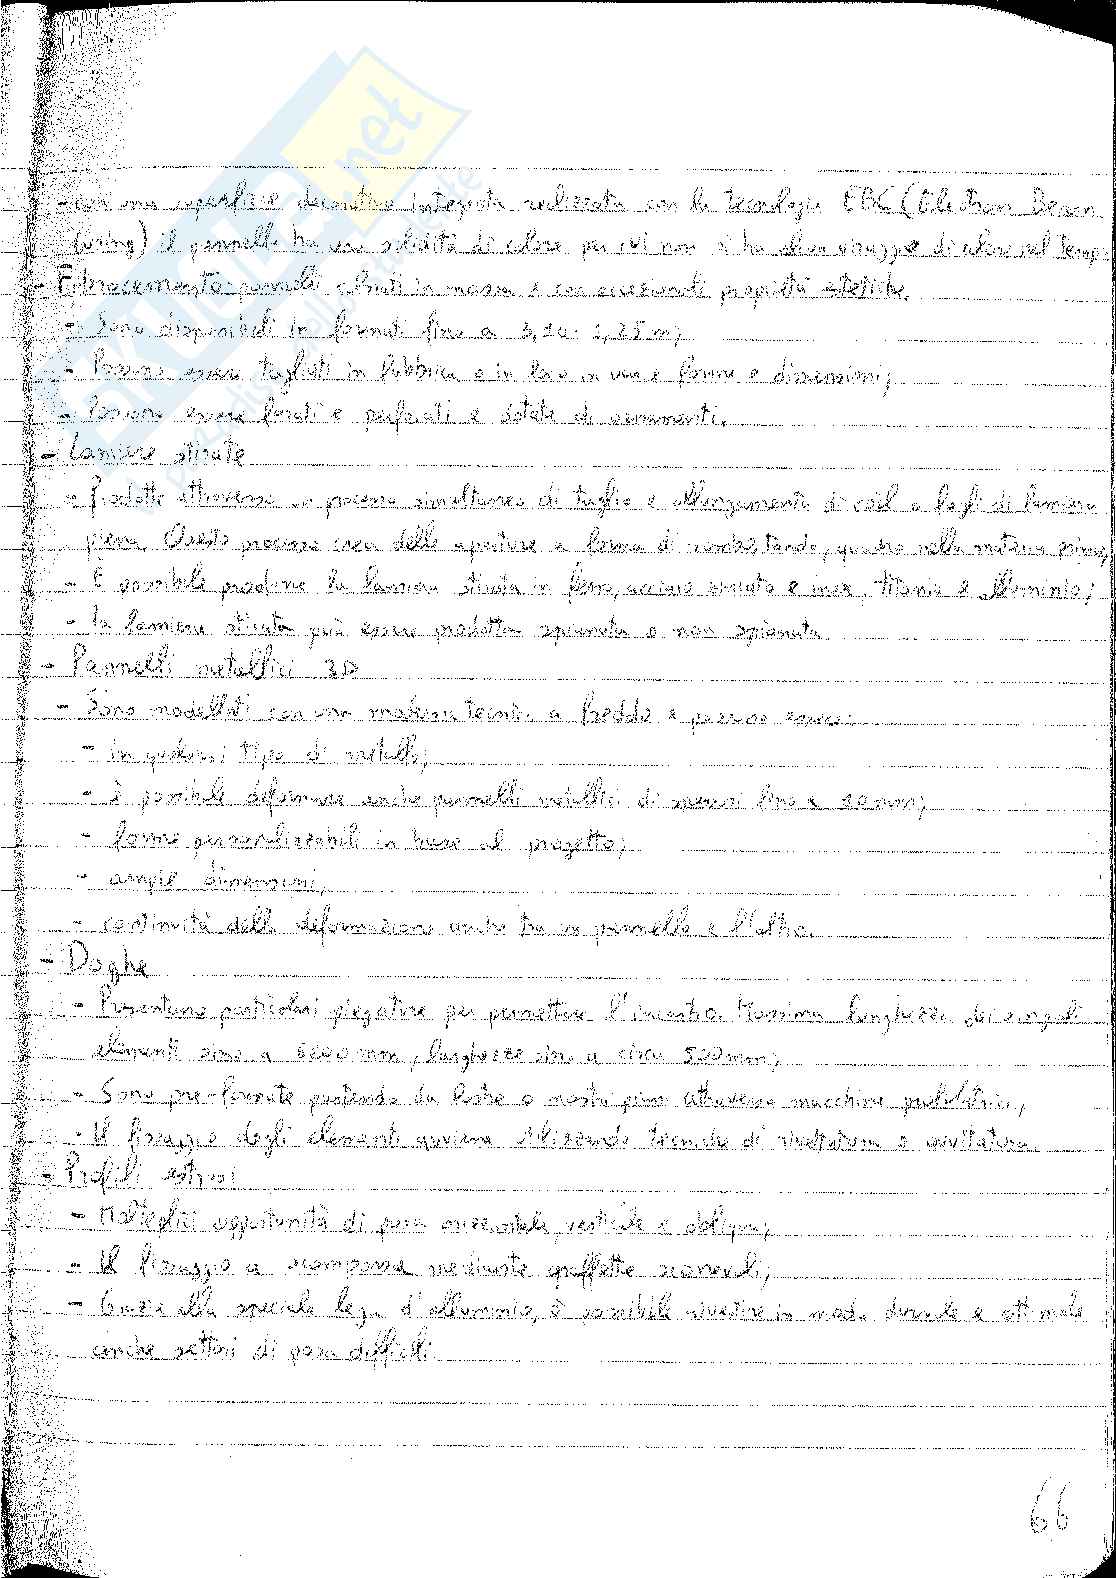 - con una superficie decorativa integrata realizzata con la tecnologia EBC (Electron Beam
Curing) il pannello ha una solidità di colore per cui non si ha alcun di colore nel tempo.
- Fibrocemento: pannelli colorati in massa e con eccezionali proprietà estetiche.
- Sono disponibili in formati fino a 3,10 · 1,25 m;
- Possono essere tagliati in fabbrica e in loco in varie forme e dimensioni;
- Possono essere forati e perforati e dotate di serramenti.
- Lamiere stirate
- Prodotte attraverso un processo simultaneo di taglio e allungamento di coil o fogli di lamiera
piena. Questo processo crea delle aperture a forma di rombo, tondo, quadro nella materia prima;
- È possibile produrre la lamiera stirata in ferro, acciaio zincato e inox, titanio e alluminio;
- la lamiera stirata può essere prodotta spianata o non spianata.
- Pannelli metallici 3D
- Sono modellati con una tecnica a freddo e possono essere:
- in qualsiasi tipo di metallo;
- è possibile deformare anche pannelli metallici di spessori fino a 10 mm;
- forme personalizzabili in base al progetto;
- ampie dimensioni;
- continuità della deformazione anche tra un pannello e l'altro.
- Doghe
- Presentano particolari piegature per permettere l'incastro. Massima lunghezza dei singoli
elementi sino a 6000 mm, larghezze sino a circa 500 mm;
- Sono pre-formate partendo da lastre o nastri piani attraverso macchine profilatrici;
- Il fissaggio degli elementi avviene utilizzando tecniche di rivettatura o avvitatura.
- Profili estrusi
- Molteplici opportunità di posa orizzontale, verticale e obliqua;
- Il fissaggio a scomparsa mediante graffette scorrevoli;
- Grazie alla speciale lega d'alluminio, è possibile rivestire in modo durevole e ottimale
anche settori di posa difficili.
66
SKUOLA.net